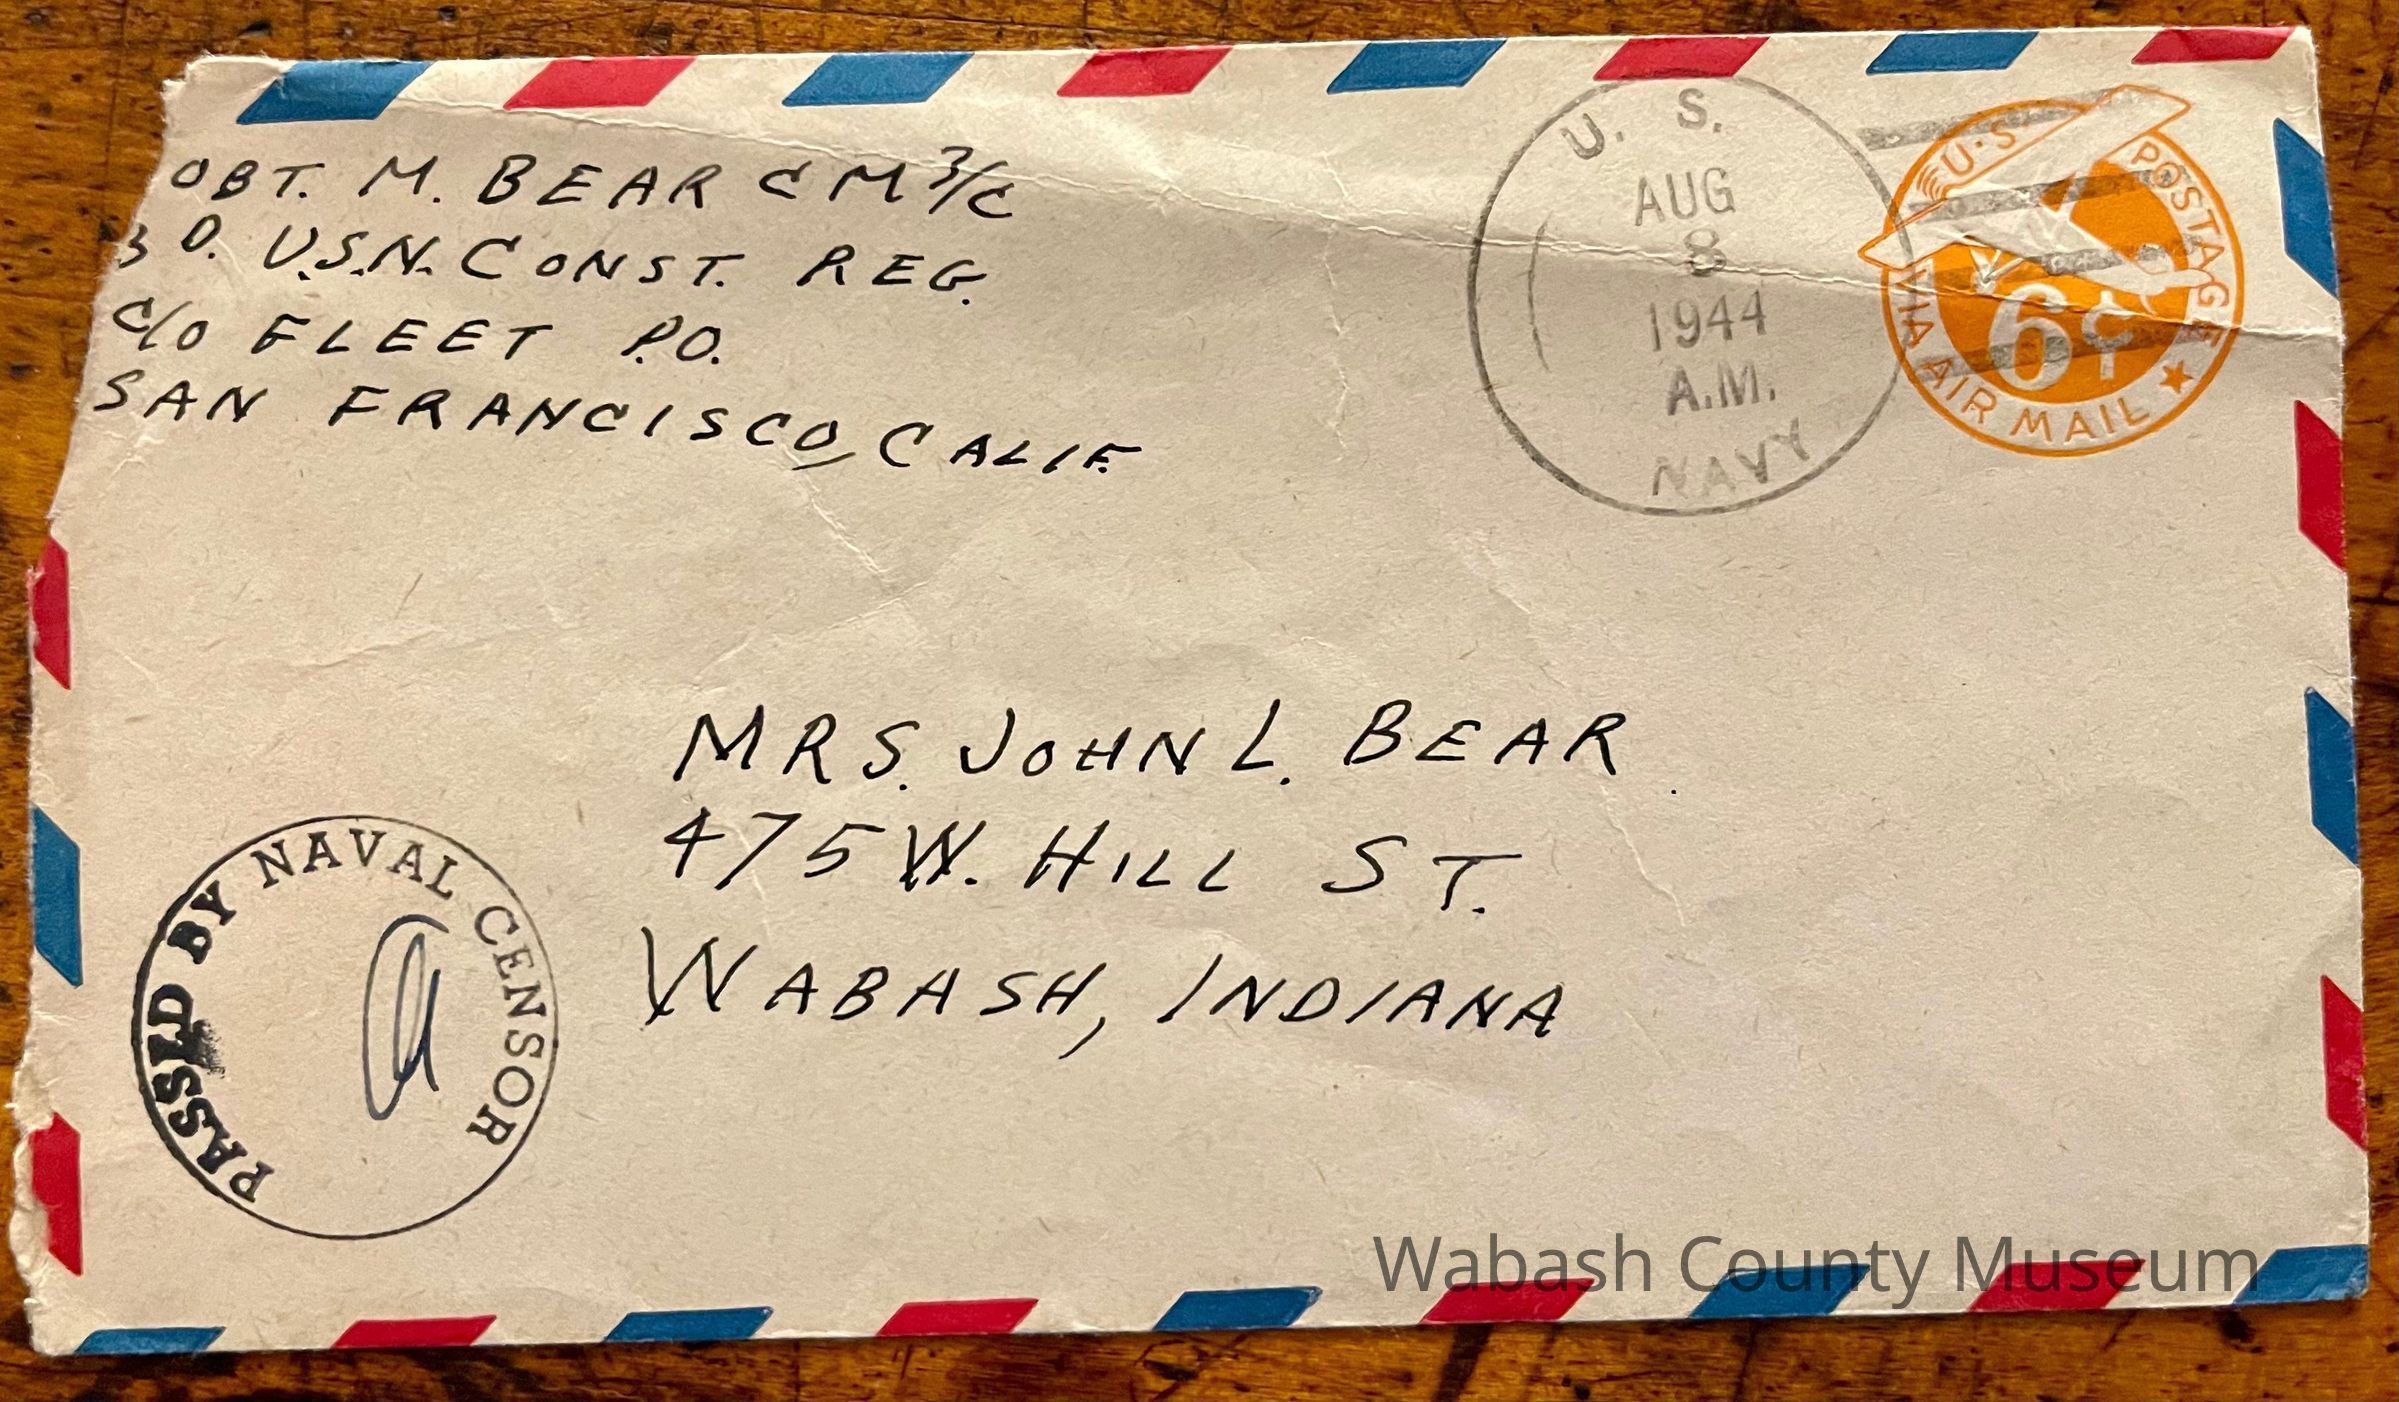 OBT. M. BEAR CM 3/C
30. U.S.N. CONST. REG.
C/O FLEET P.O.
SAN FRANCISCO, CALIF.
U. S.
AUG
8
1944
A.M.
NAVY
U.S. POSTAGE
6¢
VIA AIR MAIL
MRS. JOHN L. BEAR
475 W. HILL ST.
WABASH, INDIANA
PASSED BY NAVAL CENSOR
Wabash County Museum